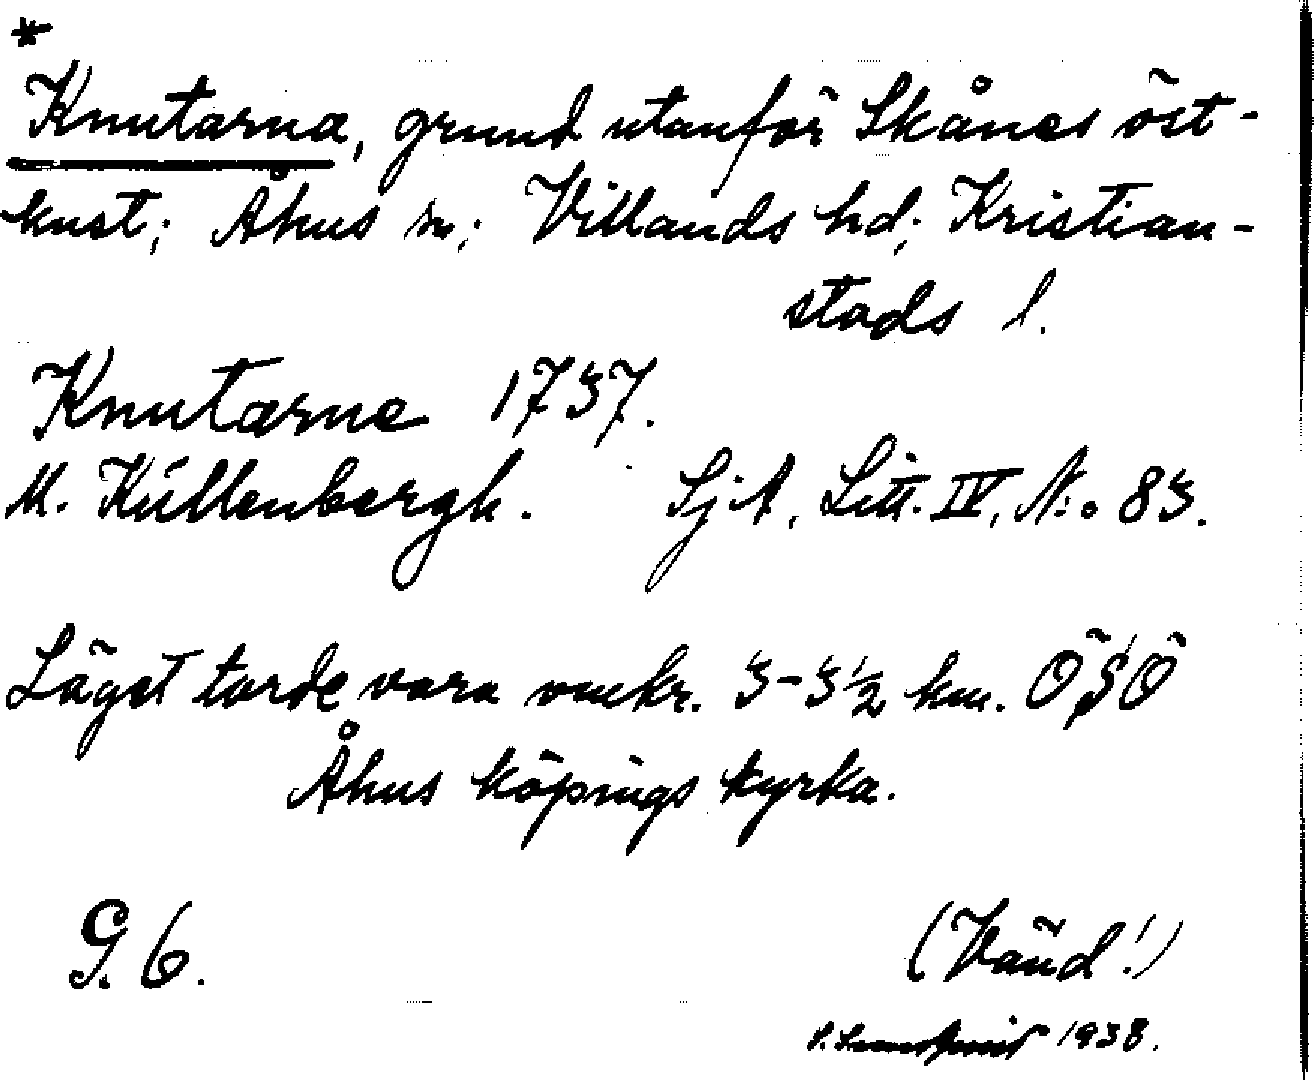 *
Knutarna, grund utanför Skånes öst-
kust; Åhus sn; Villands hd; Kristian-
stads l.
Knutarne 1737.
M. Küllenbergh. SjA, Litt. IV, N:o 83.
Läget torde vara omkr. 3-3½ km. ÖSÖ
Åhus köpings kyrka.
G. 6.
(Vänd!)
1938.